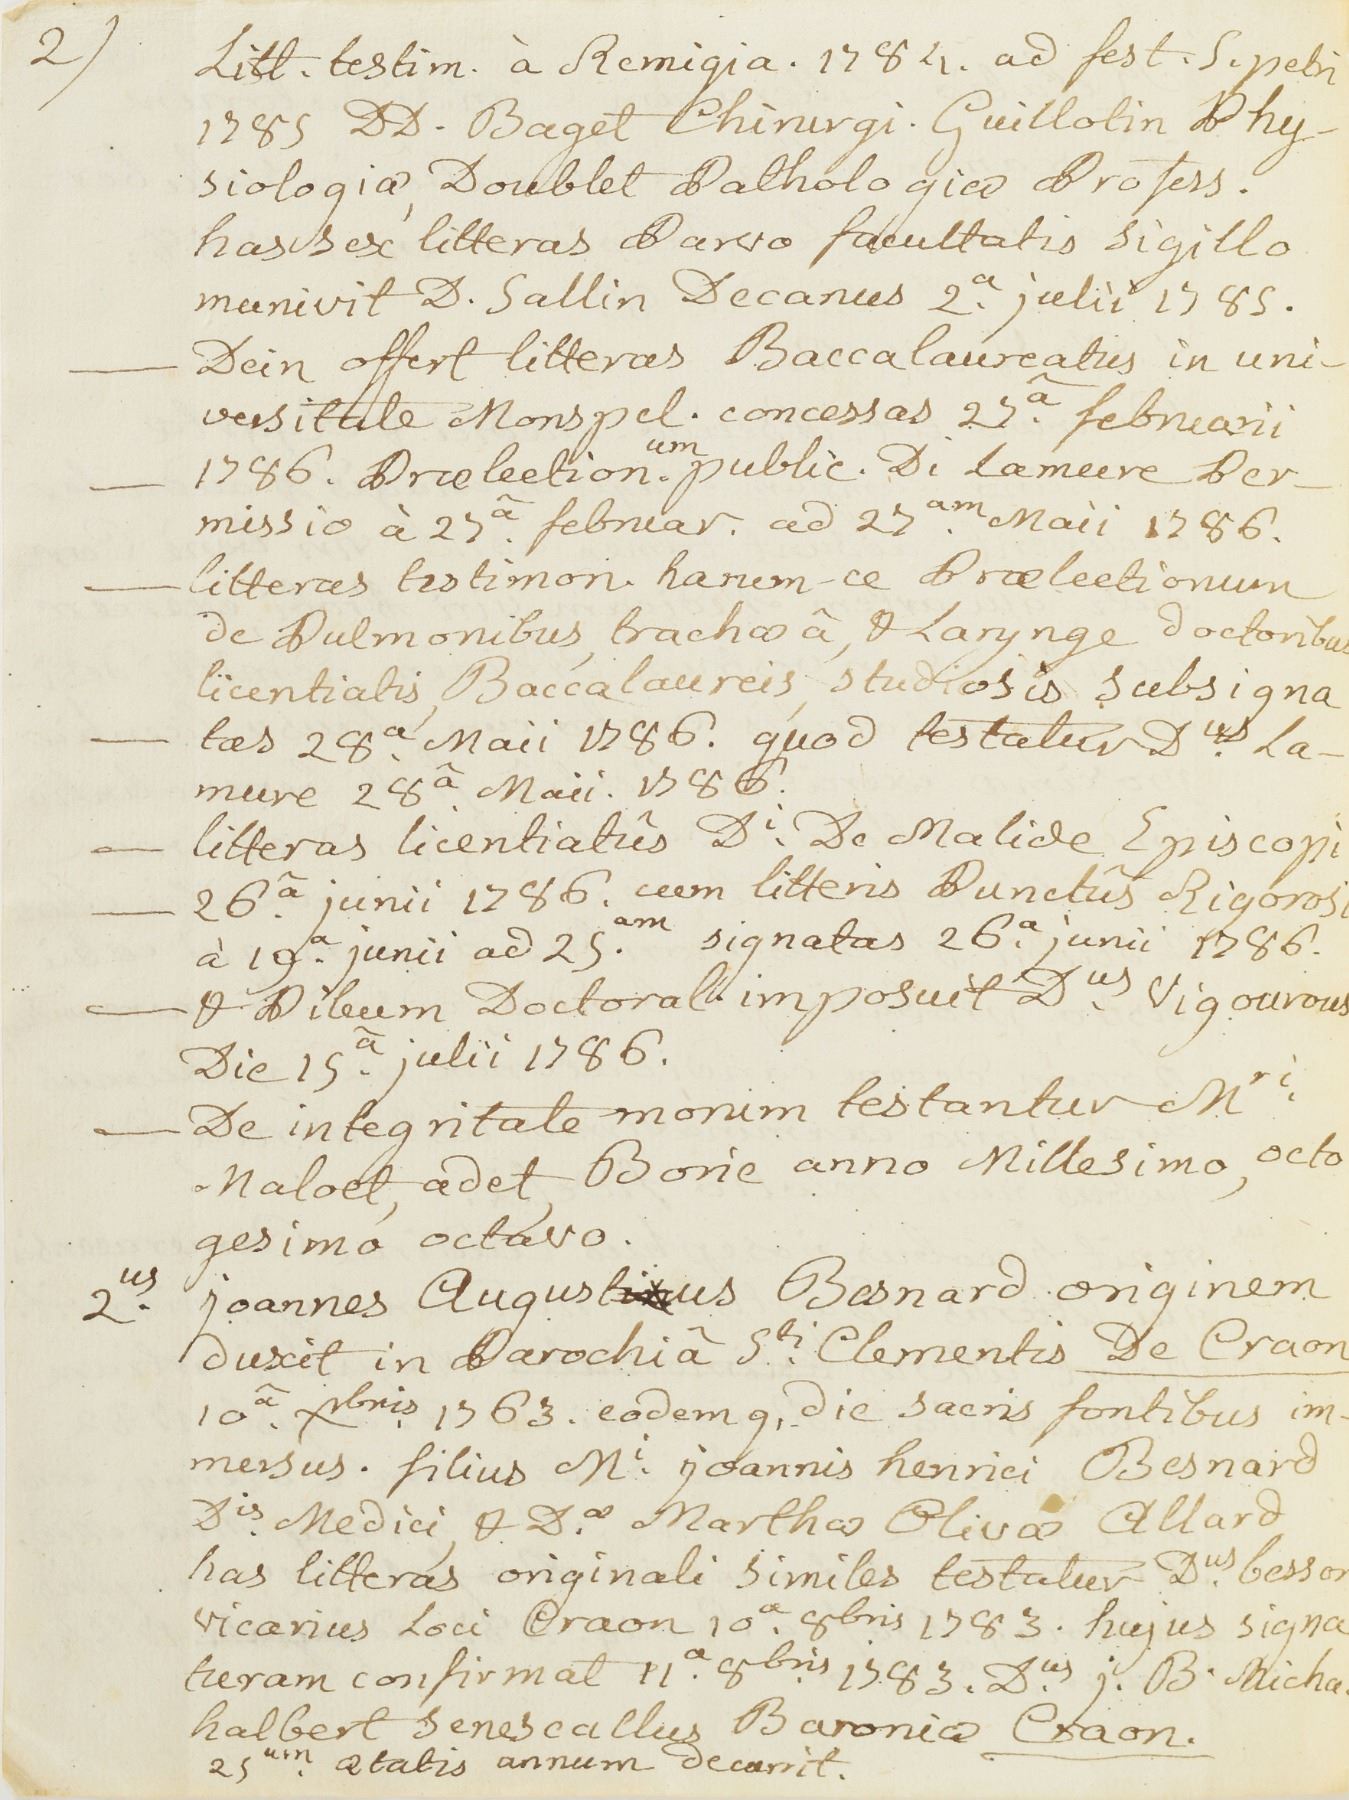 2)
Litt. testim. à Remigia. 1784. ad fest. S. petri
1785 DD. Baget Chirurgi. Guillotin Phy-
siologiæ, Doublet Pathologiæ Profess.
has sex litteras Parvo facultatis sigillo
munivit D. Sallin Decanus 2.a julii 1785.
— Dein offert litteras Baccalaureatus in uni-
versitate Monspel. concessas 27.â februarii
— 1786. Prælection.um public. Di Lamure Per-
missio à 27.â februar. ad 27.am Maii 1786.
— litteras testimon. harum-ce Prælectionum
de Pulmonibus, trachæâ, & Larynge doctoribus
licentiatis, Baccalaureis, studiosis subsigna
— tas 28.a Maii 1786. quod testatur D.us La-
mure 28.â Maii. 1786.
— litteras licentiatûs D.i De Malide Episcopi
— 26.â junii 1786. cum litteris Punctûs Rigorosi
à 19.a junii ad 25.am signatas 26.a junii 1786.
— & Pileum Doctoral. imposuit D.us Vigourous
Die 15.â julii 1786.
— De integritate morum testantur M.ri
Maloet, adet, Borie anno Millesimo, octo
gesimo octavo.
2.us joannes Augustinus Besnard originem
duxit in Parochiâ S.ti Clementis De Craon
10.â Xbris. 1763. eodemq, die sacris fontibus im-
mersus. filius M.i joannis henrici Besnard
D.is Medici, & D.æ Marthæ Olivæ Allard
has litteras originali similes testatur D.us besson
vicarius Loci Craon 10.a 8bris 1783. hujus signa
turam confirmat 11.a 8bris 1783. D.us j. B. Micha
halbert senescallus Baroniæ Craon.
25.um ætatis annum decurrit.